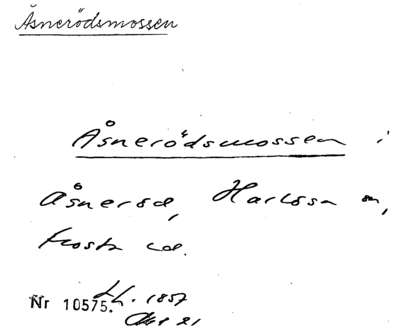 Åsnerödsmossen
Åsnerödsmossen i
Åsneröd, Harlösa sn,
Frosta hd.
1857
Nr 10575.
21